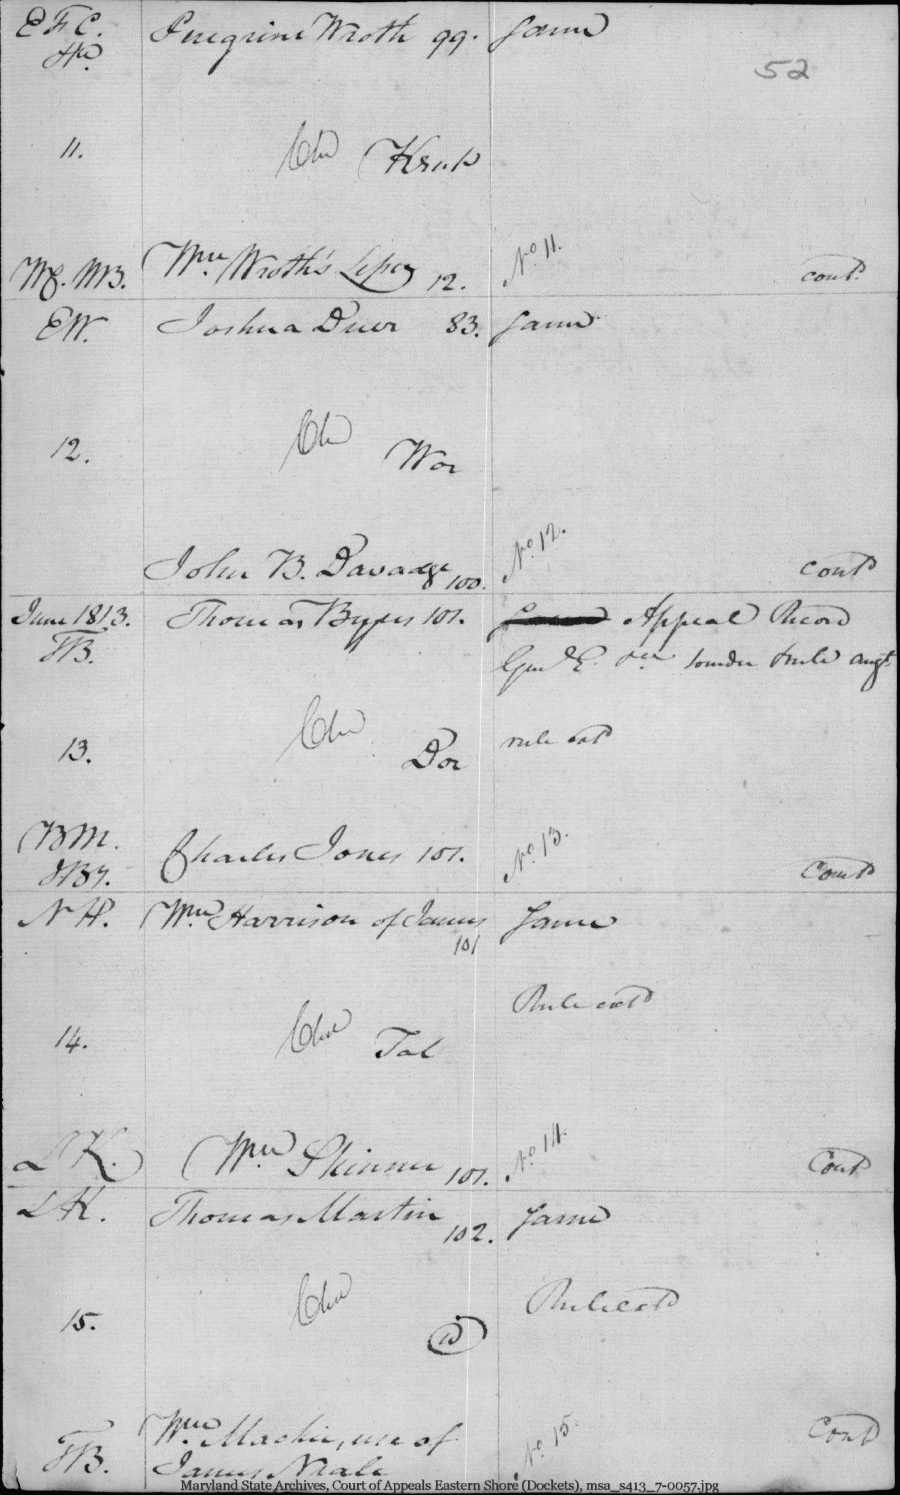 E F C. Peregrine Wroth 99. Same
52
11. Kent
Wm. Wroth's Lessee 12. No. 11. cont.
E W. Joshua Duer 83. Same
12. Wor
John B. Davadge 100. No. 12. Cont
June 1813. Thomas Byus 101. Same Appeal Record
TB.
13. Dor rule ext
BM. Charles Jones 101. No. 13. Cont
N H. Wm Harrison of James Same
101
Rule ext
14. Tal
L K. Wm Skinner 101. No 14. Cont
L K. Thomas Martin Same
102.
Rule ext
15. D
Wm. Mackie, use of No 15. Cont
TB. James Neale
Maryland State Archives, Court of Appeals Eastern Shore (Dockets), msa_s413_7-0057.jpg